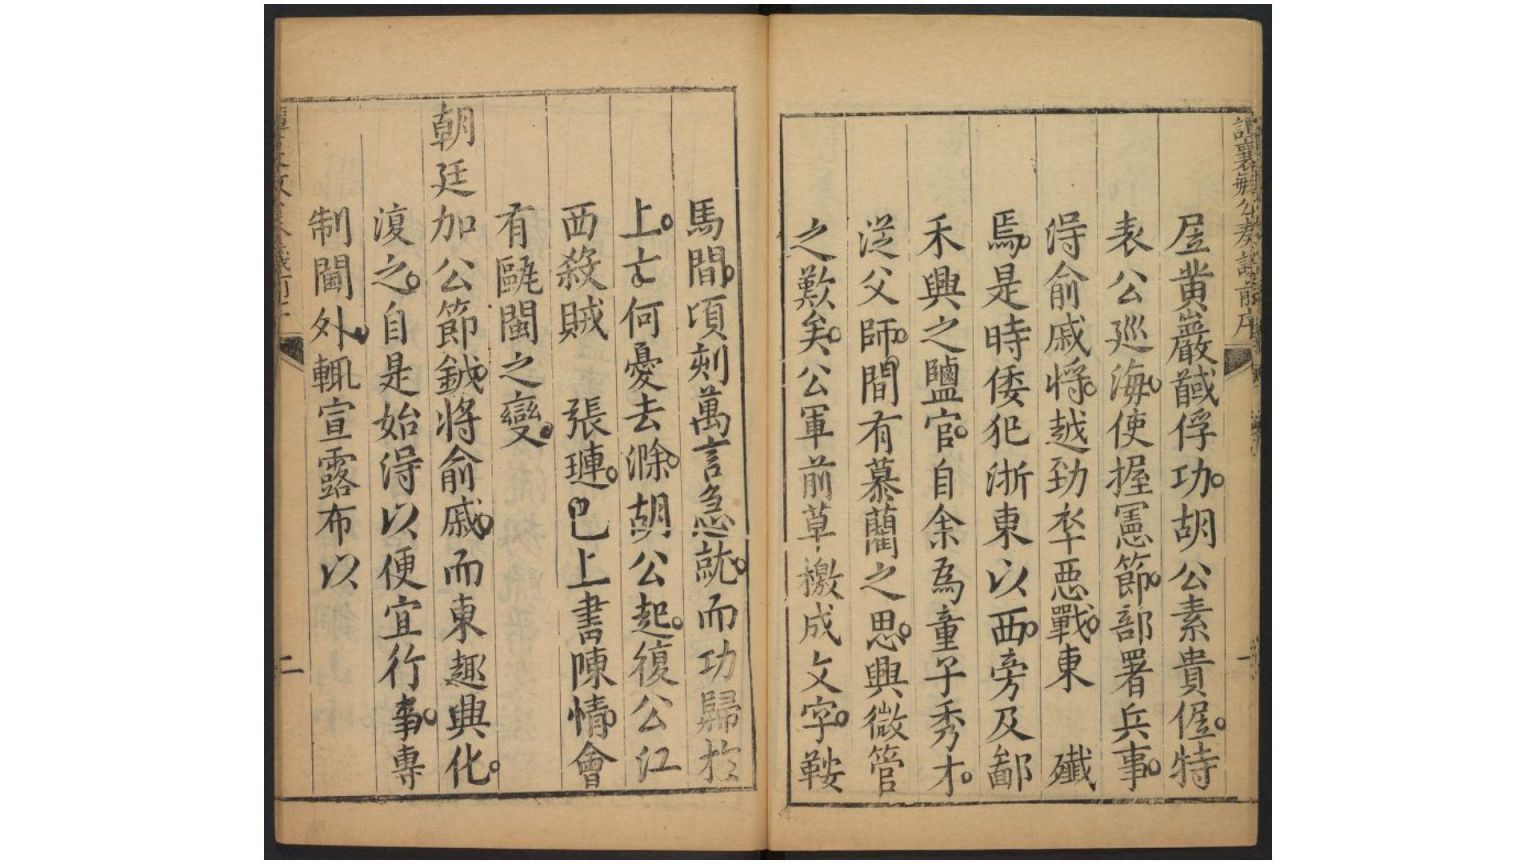 屋黄巖馘俘功。胡公素貴倨。特
表公廵海。使握憲節。部署兵事。
淂俞戚将。越勁卒惡戰。東　殲
焉。是時倭犯浙東以西。旁及鄙
禾興之鹽官。自余為童子秀才。
従父師。間有慕藺之思。興微管
之歎矣。公軍前草檄成文字。鞍
馬間。頃刻萬言急就。而功歸於
上。亡何憂去滁。胡公起。復公江
西殺賊　張璉。巴上書陳情。會
有甌閩之變。
朝廷加公節鉞。将俞戚。而東趣興化。
復之。自是始淂以便宜行事。專
制閫外。輒宣露布以
二